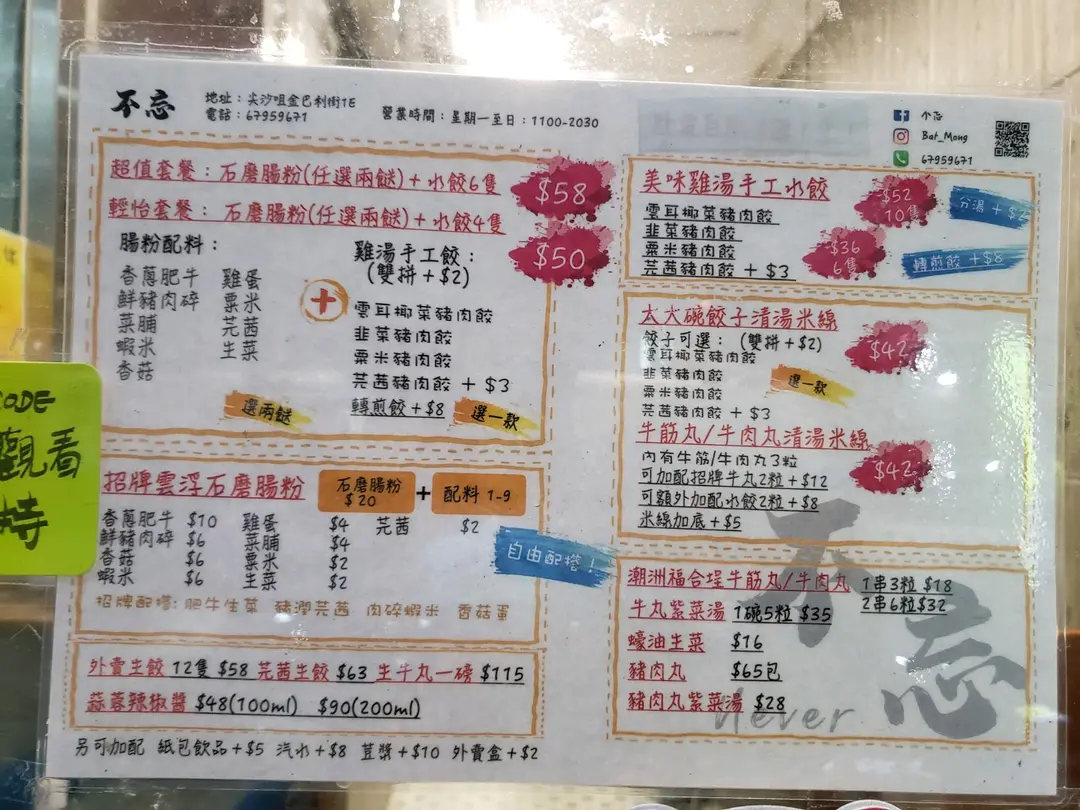 不忘
地址：尖沙咀金巴利街1E
電話：67959671
營業時間：星期一至日：1100-2030
不忘
Bat_Mong
67959671
超值套餐：石磨腸粉(任選兩餸)+水餃6隻
$58
輕怡套餐：石磨腸粉(任選兩餸)+水餃4隻
$50
腸粉配料：
香蔥肥牛 雞蛋
鮮豬肉碎 粟米
菜脯 芫茜
蝦米 生菜
香菇
選兩餸
+
雞湯手工餃：
(雙拼+$2)
雲耳椰菜豬肉餃
韭菜豬肉餃
粟米豬肉餃
芫茜豬肉餃 + $3
轉煎餃+$8
選一款
招牌雲浮石磨腸粉
石磨腸粉
$20
+
配料 1-9
香蔥肥牛 $10 雞蛋 $4 芫茜 $2
鮮豬肉碎 $6 菜脯 $4
香菇 $6 粟米 $2
蝦米 $6 生菜 $2
自由配搭！
招牌配搭：肥牛生菜 豬潤芫茜 肉碎蝦米 香菇蛋
外賣生餃 12隻 $58 芫茜生餃 $63 生牛丸一磅 $115
蒜蓉辣椒醬 $48(100ml) $90(200ml)
另可加配 紙包飲品+$5 汽水+$8 荳漿+$10 外賣盒+$2
美味雞湯手工水餃
$52
10隻
分湯+$2
雲耳椰菜豬肉餃
韭菜豬肉餃
粟米豬肉餃
芫茜豬肉餃 + $3
$36
6隻
轉煎餃+$8
大大碗餃子清湯米線
$42
餃子可選：(雙拼+$2)
雲耳椰菜豬肉餃
韭菜豬肉餃
粟米豬肉餃
芫茜豬肉餃 + $3
選一款
牛筋丸/牛肉丸清湯米線
$42
內有牛筋/牛肉丸3粒
可加配招牌牛丸2粒+$12
可額外加配水餃2粒+$8
米線加底+$5
潮洲福合埕牛筋丸/牛肉丸 1串3粒 $18
2串6粒$32
牛丸紫菜湯 1碗5粒 $35
蠔油生菜 $16
豬肉丸 $65包
豬肉丸紫菜湯 $28
不忘
never
CODE
觀看